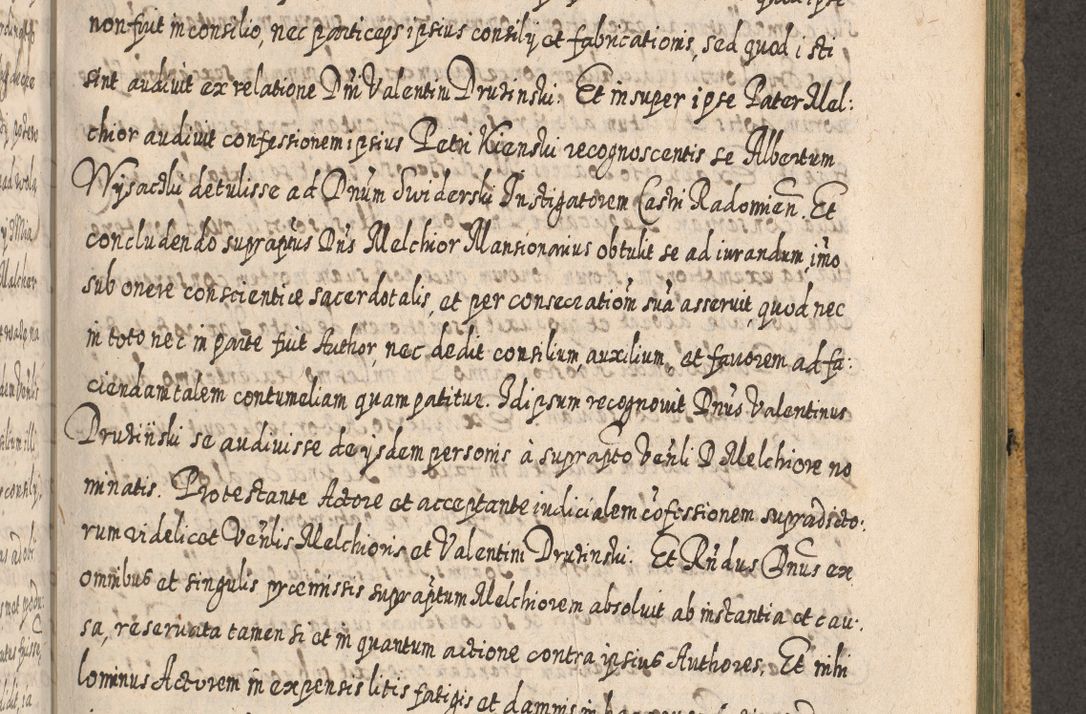 non fuit in consilio, nec particeps ipsius consilij et fabricationis, sed quod isti
sint audiuit ex relatione Dni Valentini Drużinski. Et insuper ipse Pater Mel:
chior audiuit confessionem ipsius Petri Kienski recognoscentis se Albertum
Wysocki detulisse ad Dnum Swiderski Instigatorem Castri Radomien. Et
concludendo supraptus Dns Melchior Mansionarius obtulit se ad iurandum, imo
sub onere conscientiæ sacerdotalis, et per consecrationem sua asseruit, quod nec
in toto nec in parte fuit Author, nec dedit consilium, auxilium, et fauorem ad fa:
ciendam talem contumeliam quam patitur. Idipsum recognouit Dnus Valentinus
Drużinski se audiuisse de ijsdem personis à suprapto Venli D Melchiore no
minatis. Protestante Actore et acceptante iudicialem cofessionem supradicto:
rum videlicet Venlis Melchioris et Valentini Drużinski. Et Rndus Dnus ex
omnibus et singulis præmissis supraptum Melchiorem absoluit ab instantia et cau:
sa, reseruata tamen si et in quantum actione contra ipsius Authores. Et nihi
lominus Actorem in expensis litis fatigis et damnis